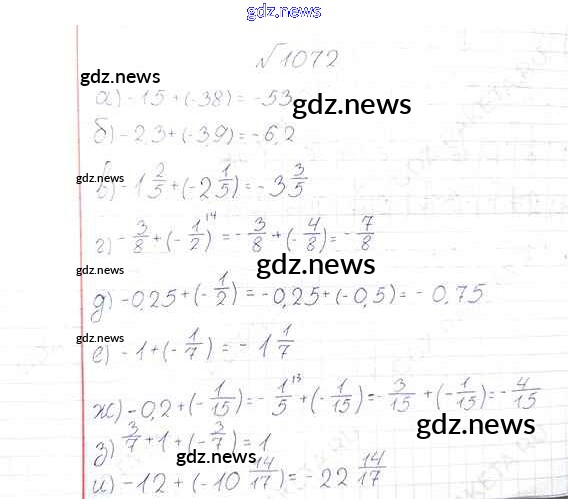 gdz.news
№1072
gdz.news
а) -15 + (-38) = -53
gdz.news
б) -2,3 + (-3,9) = -6,2
gdz.news
в) -1 2/5 + (-2 1/5) = -3 3/5
г) -3/8 + (-1/2)^14 = -3/8 + (-4/8) = -7/8
gdz.news
д) -0,25 + (-1/2) = -0,25 + (-0,5) = -0,75
gdz.news
е) -1 + (-1/7) = -1 1/7
ж) -0,2 + (-1/15) = -1/5^13 + (-1/15) = -3/15 + (-1/15) = -4/15
gdz.news
з) 3/7 + 1 + (-3/7) = 1
gdz.news
и) -12 + (-10 14/17) = -22 14/17